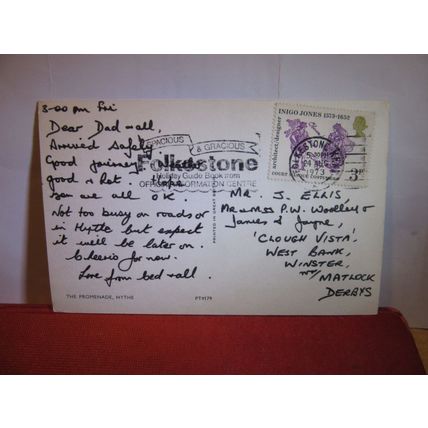 3-00 pm Fri
Dear Dad & all,
Arrived safely
Good journey
good a Rest. Hope
you are all OK.
Not too busy on roads or
in Hythe but expect
it will be later on.
Cheerio for now.
Love from Ced & all.
THE PROMENADE, HYTHE
PT9179
SPACIOUS & GRACIOUS
Folkestone
Holiday Guide Book from
OFFICIAL INFORMATION CENTRE
PRINTED IN GREAT
INIGO JONES 1573-1652
architect/designer
COURT
3P
FOLKESTONE KENT
24 AUG
1973
Mr. J. ELLIS,
Mr & Mrs P.W. Woolley &
James & Jayne,
'CLOUGH VISTA',
WEST BANK,
WINSTER,
Nr/ MATLOCK
DERBYS